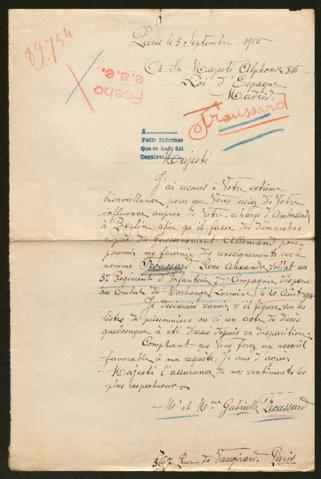 89.754
Fecho
e.a.e.
Paris le 30 Septembre 1915
A Sa Majesté Alphonse XIII
Roi d'Espagne
Madrid
Troussard
A
Pedir informes
Que se hace así
Majesté
J'ai recours à Votre extrême
bienveillance pour que Vous usiez de Votre
influence auprès de Votre chargé d'Ambassade
à Berlin afin qu'il fasse des démarches
auprès du Gouvernement Allemand pour
pouvoir me fournir des renseignements sur le
nommé Troussard René Alexandre soldat au
Régiment d'Infanterie 7e Compagnie disparu
au Combat de Morhange (Lorraine) le 20 Août 1914
Je désirerais savoir s'il figure sur les
listes de prisonniers ou si un acte de décès
quelconque a été dressé depuis sa disparition.
Comptant que Vous ferez un accueil
favorable à ma requête, Je vous d'agréer
Majesté l'assurance de nos sentiments les
plus respectueux.
Mr et Mme Gabrielle Troussard
Rue de Vaugirard. Paris